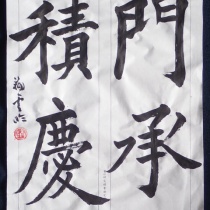 門承
積慶